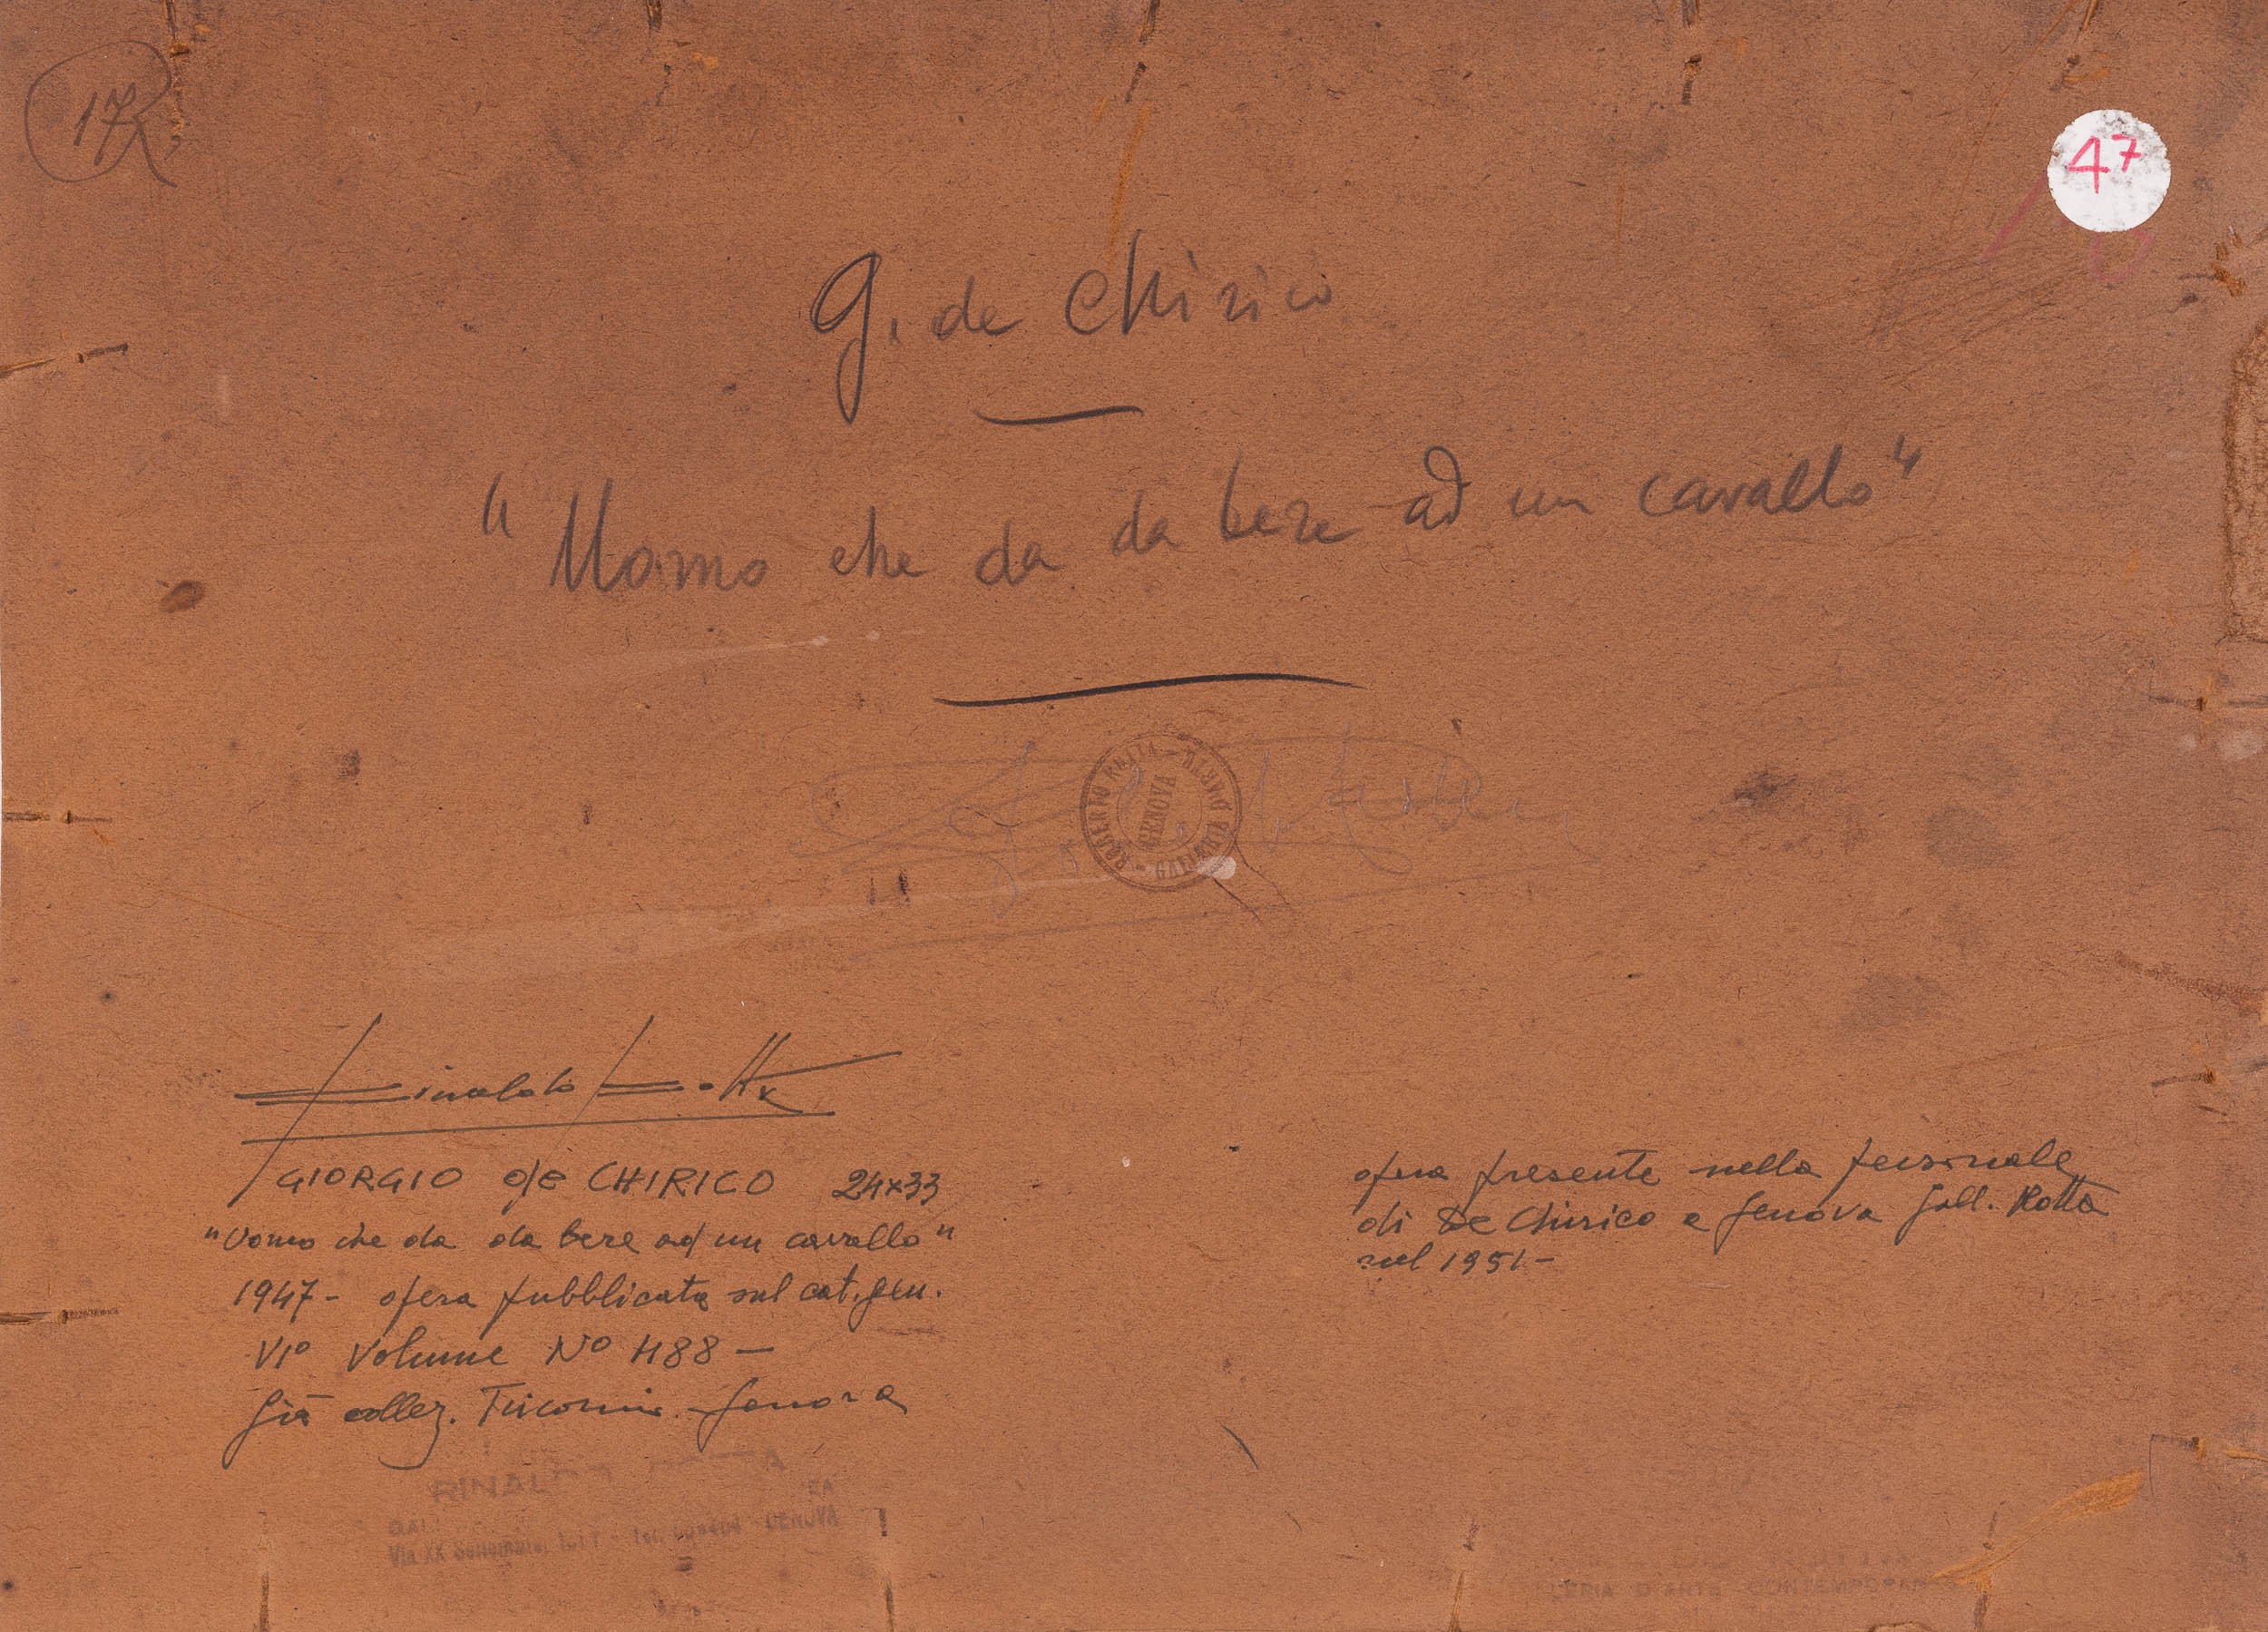 17
47
G. de Chirico
"Uomo che da da bere ad un cavallo"
ROBERTO ROTTA - GALLERIA D'ARTE -
GENOVA
Rinaldo Rotta
GIORGIO de CHIRICO 24x33
"Uomo che da da bere ad un cavallo"
1947 - opera pubblicata sul cat. gen.
VI° Volume N° 488 -
Già collez. Genova
opera presente nella personale
di De Chirico a Genova Gall. Rotta
nel 1951 -
RINAL
Via XX Settembre, GENOVA
LERIA D'ARTE CONTEMPORAN